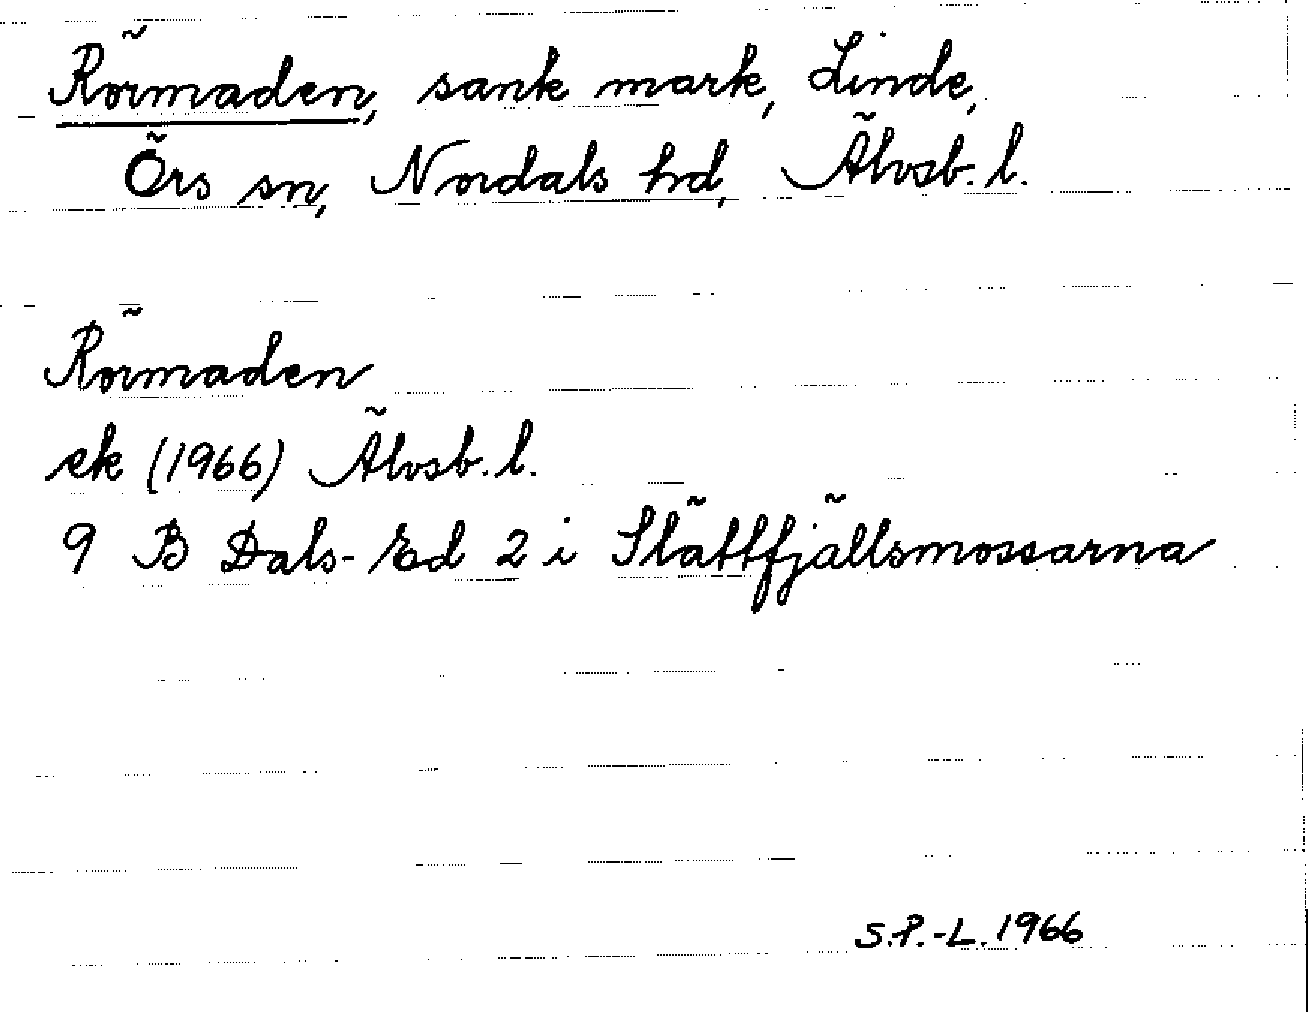 Rörmaden, sank mark, Linde,
Örs sn, Nordals hd, Älvsb. l.
Rörmaden
ek (1966) Älvsb. l.
9 B Dals-Ed 2 i Slättfjällsmossarna
S.P.-L. 1966